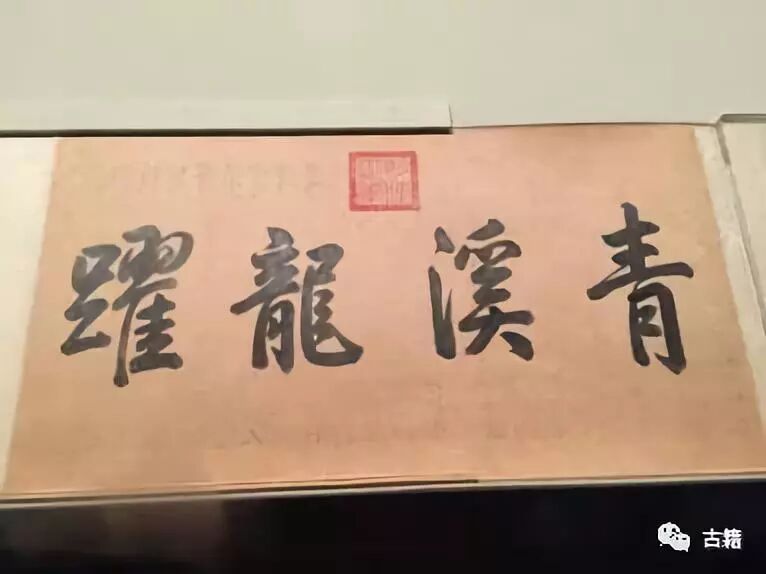 青溪龍躍
古籍